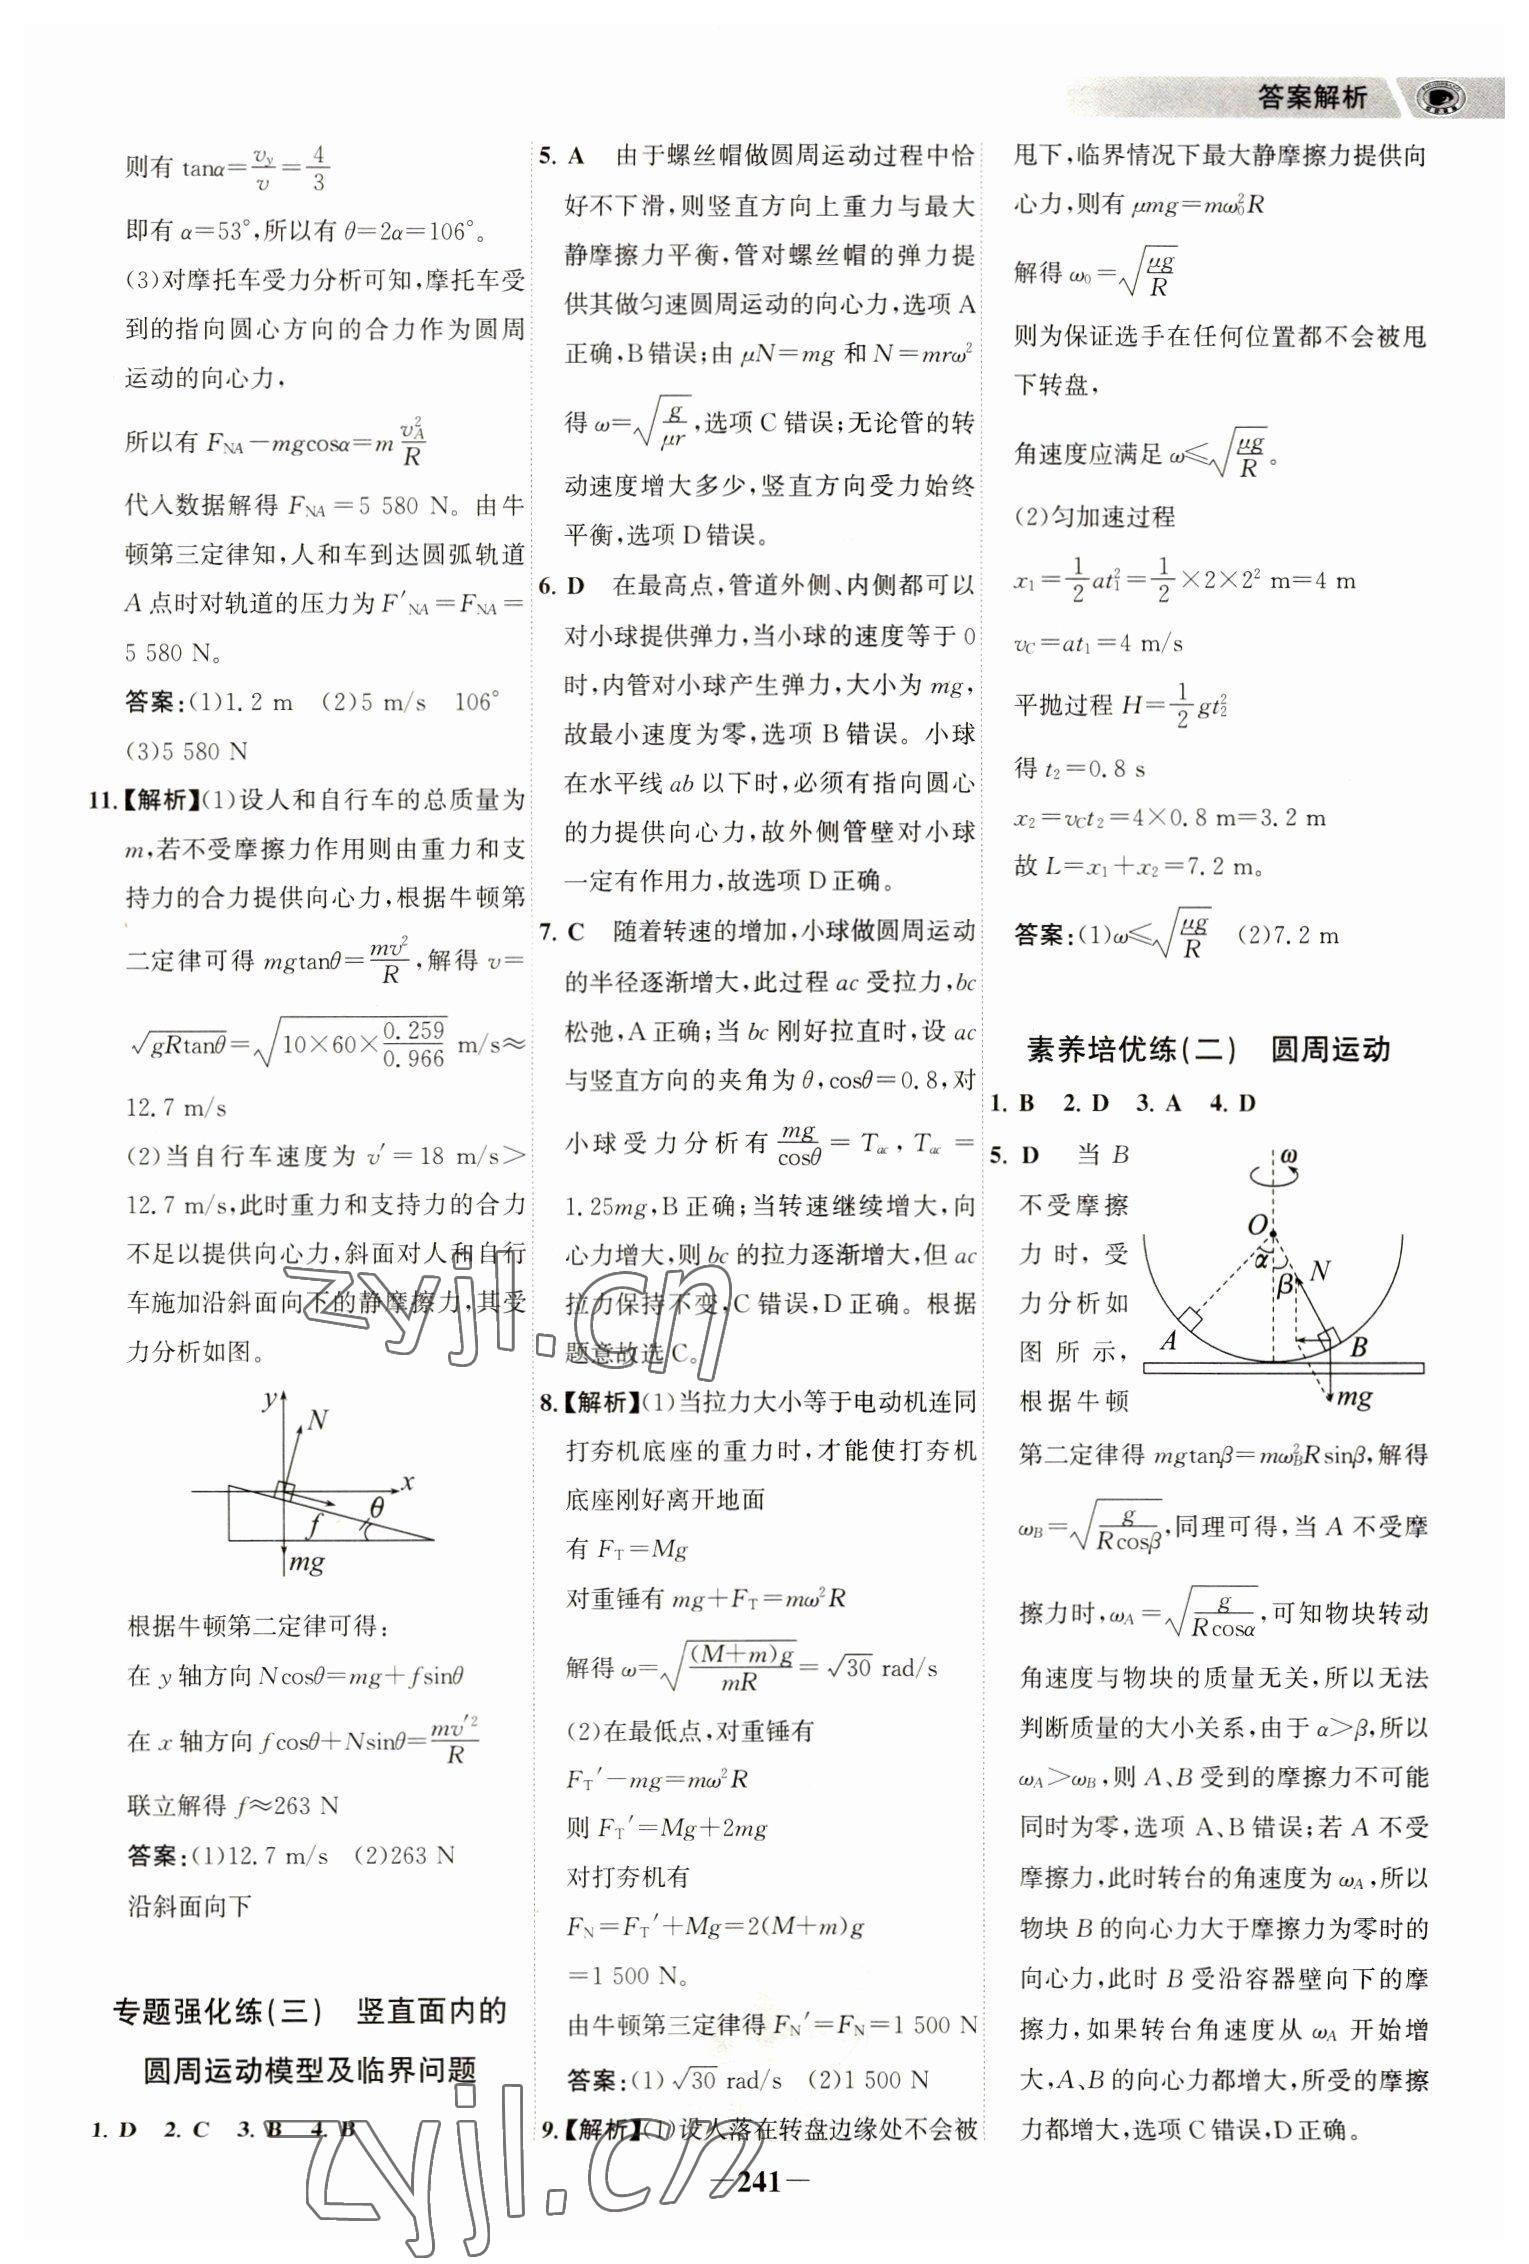 答案解析
则有 tanα=v_y/v=4/3
即有 α=53°,所以有 θ=2α=106°。
(3)对摩托车受力分析可知,摩托车受
到的指向圆心方向的合力作为圆周
运动的向心力,
所以有 F_NA-mgcosα=m v_A²/R
代入数据解得 F_NA=5 580 N。由牛
顿第三定律知,人和车到达圆弧轨道
A 点时对轨道的压力为 F′_NA=F_NA=
5 580 N。
答案:(1)1.2 m (2)5 m/s 106°
(3)5 580 N
11.【解析】(1)设人和自行车的总质量为
m,若不受摩擦力作用则由重力和支
持力的合力提供向心力,根据牛顿第
二定律可得 mgtanθ=mv²/R,解得 v=
√(gRtanθ)=√(10×60×0.259/0.966) m/s≈
12.7 m/s
(2)当自行车速度为 v′=18 m/s>
12.7 m/s,此时重力和支持力的合力
不足以提供向心力,斜面对人和自行
车施加沿斜面向下的静摩擦力,其受
力分析如图。
y
N
x
θ
f
mg
根据牛顿第二定律可得:
在 y 轴方向 Ncosθ=mg+fsinθ
在 x 轴方向 fcosθ+Nsinθ=mv′²/R
联立解得 f≈263 N
答案:(1)12.7 m/s (2)263 N
沿斜面向下
专题强化练(三) 竖直面内的
圆周运动模型及临界问题
1. D 2. C 3. B 4. B
5. A 由于螺丝帽做圆周运动过程中恰
好不下滑,则竖直方向上重力与最大
静摩擦力平衡,管对螺丝帽的弹力提
供其做匀速圆周运动的向心力,选项 A
正确,B 错误;由 μN=mg 和 N=mrω²
得 ω=√(g/μr),选项 C 错误;无论管的转
动速度增大多少,竖直方向受力始终
平衡,选项 D 错误。
6. D 在最高点,管道外侧、内侧都可以
对小球提供弹力,当小球的速度等于 0
时,内管对小球产生弹力,大小为 mg,
故最小速度为零,选项 B 错误。小球
在水平线 ab 以下时,必须有指向圆心
的力提供向心力,故外侧管壁对小球
一定有作用力,故选项 D 正确。
7. C 随着转速的增加,小球做圆周运动
的半径逐渐增大,此过程 ac 受拉力,bc
松弛,A 正确;当 bc 刚好拉直时,设 ac
与竖直方向的夹角为 θ,cosθ=0.8,对
小球受力分析有 mg/cosθ=T_ac,T_ac=
1.25mg,B 正确;当转速继续增大,向
心力增大,则 bc 的拉力逐渐增大,但 ac
拉力保持不变,C 错误,D 正确。根据
题意故选 C。
8.【解析】(1)当拉力大小等于电动机连同
打夯机底座的重力时,才能使打夯机
底座刚好离开地面
有 F_T=Mg
对重锤有 mg+F_T=mω²R
解得 ω=√((M+m)g/mR)=√30 rad/s
(2)在最低点,对重锤有
F_T′-mg=mω²R
则 F_T′=Mg+2mg
对打夯机有
F_N=F_T′+Mg=2(M+m)g
=1 500 N。
由牛顿第三定律得 F_N′=F_N=1 500 N
答案:(1)√30 rad/s (2)1 500 N
9.【解析】(1)设人落在转盘边缘处不会被
甩下,临界情况下最大静摩擦力提供向
心力,则有 μmg=mω₀²R
解得 ω₀=√(μg/R)
则为保证选手在任何位置都不会被甩
下转盘,
角速度应满足 ω≤√(μg/R)。
(2)匀加速过程
x₁=1/2at₁²=1/2×2×2² m=4 m
v_C=at₁=4 m/s
平抛过程 H=1/2gt₂²
得 t₂=0.8 s
x₂=v_Ct₂=4×0.8 m=3.2 m
故 L=x₁+x₂=7.2 m。
答案:(1)ω≤√(μg/R) (2)7.2 m
素养培优练(二) 圆周运动
1. B 2. D 3. A 4. D
5. D 当 B
不受摩擦
力时,受
力分析如
图所示,
根据牛顿
ω
O
α
β
N
A
B
mg
第二定律得 mgtanβ=mω_B²Rsinβ,解得
ω_B=√(g/Rcosβ),同理可得,当 A 不受摩
擦力时,ω_A=√(g/Rcosα),可知物块转动
角速度与物块的质量无关,所以无法
判断质量的大小关系,由于 α>β,所以
ω_A>ω_B,则 A、B 受到的摩擦力不可能
同时为零,选项 A、B 错误;若 A 不受
摩擦力,此时转台的角速度为 ω_A,所以
物块 B 的向心力大于摩擦力为零时的
向心力,此时 B 受沿容器壁向下的摩
擦力,如果转台角速度从 ω_A 开始增
大,A、B 的向心力都增大,所受的摩擦
力都增大,选项 C 错误,D 正确。
—241—
zyjl.cn
zyjl.cn